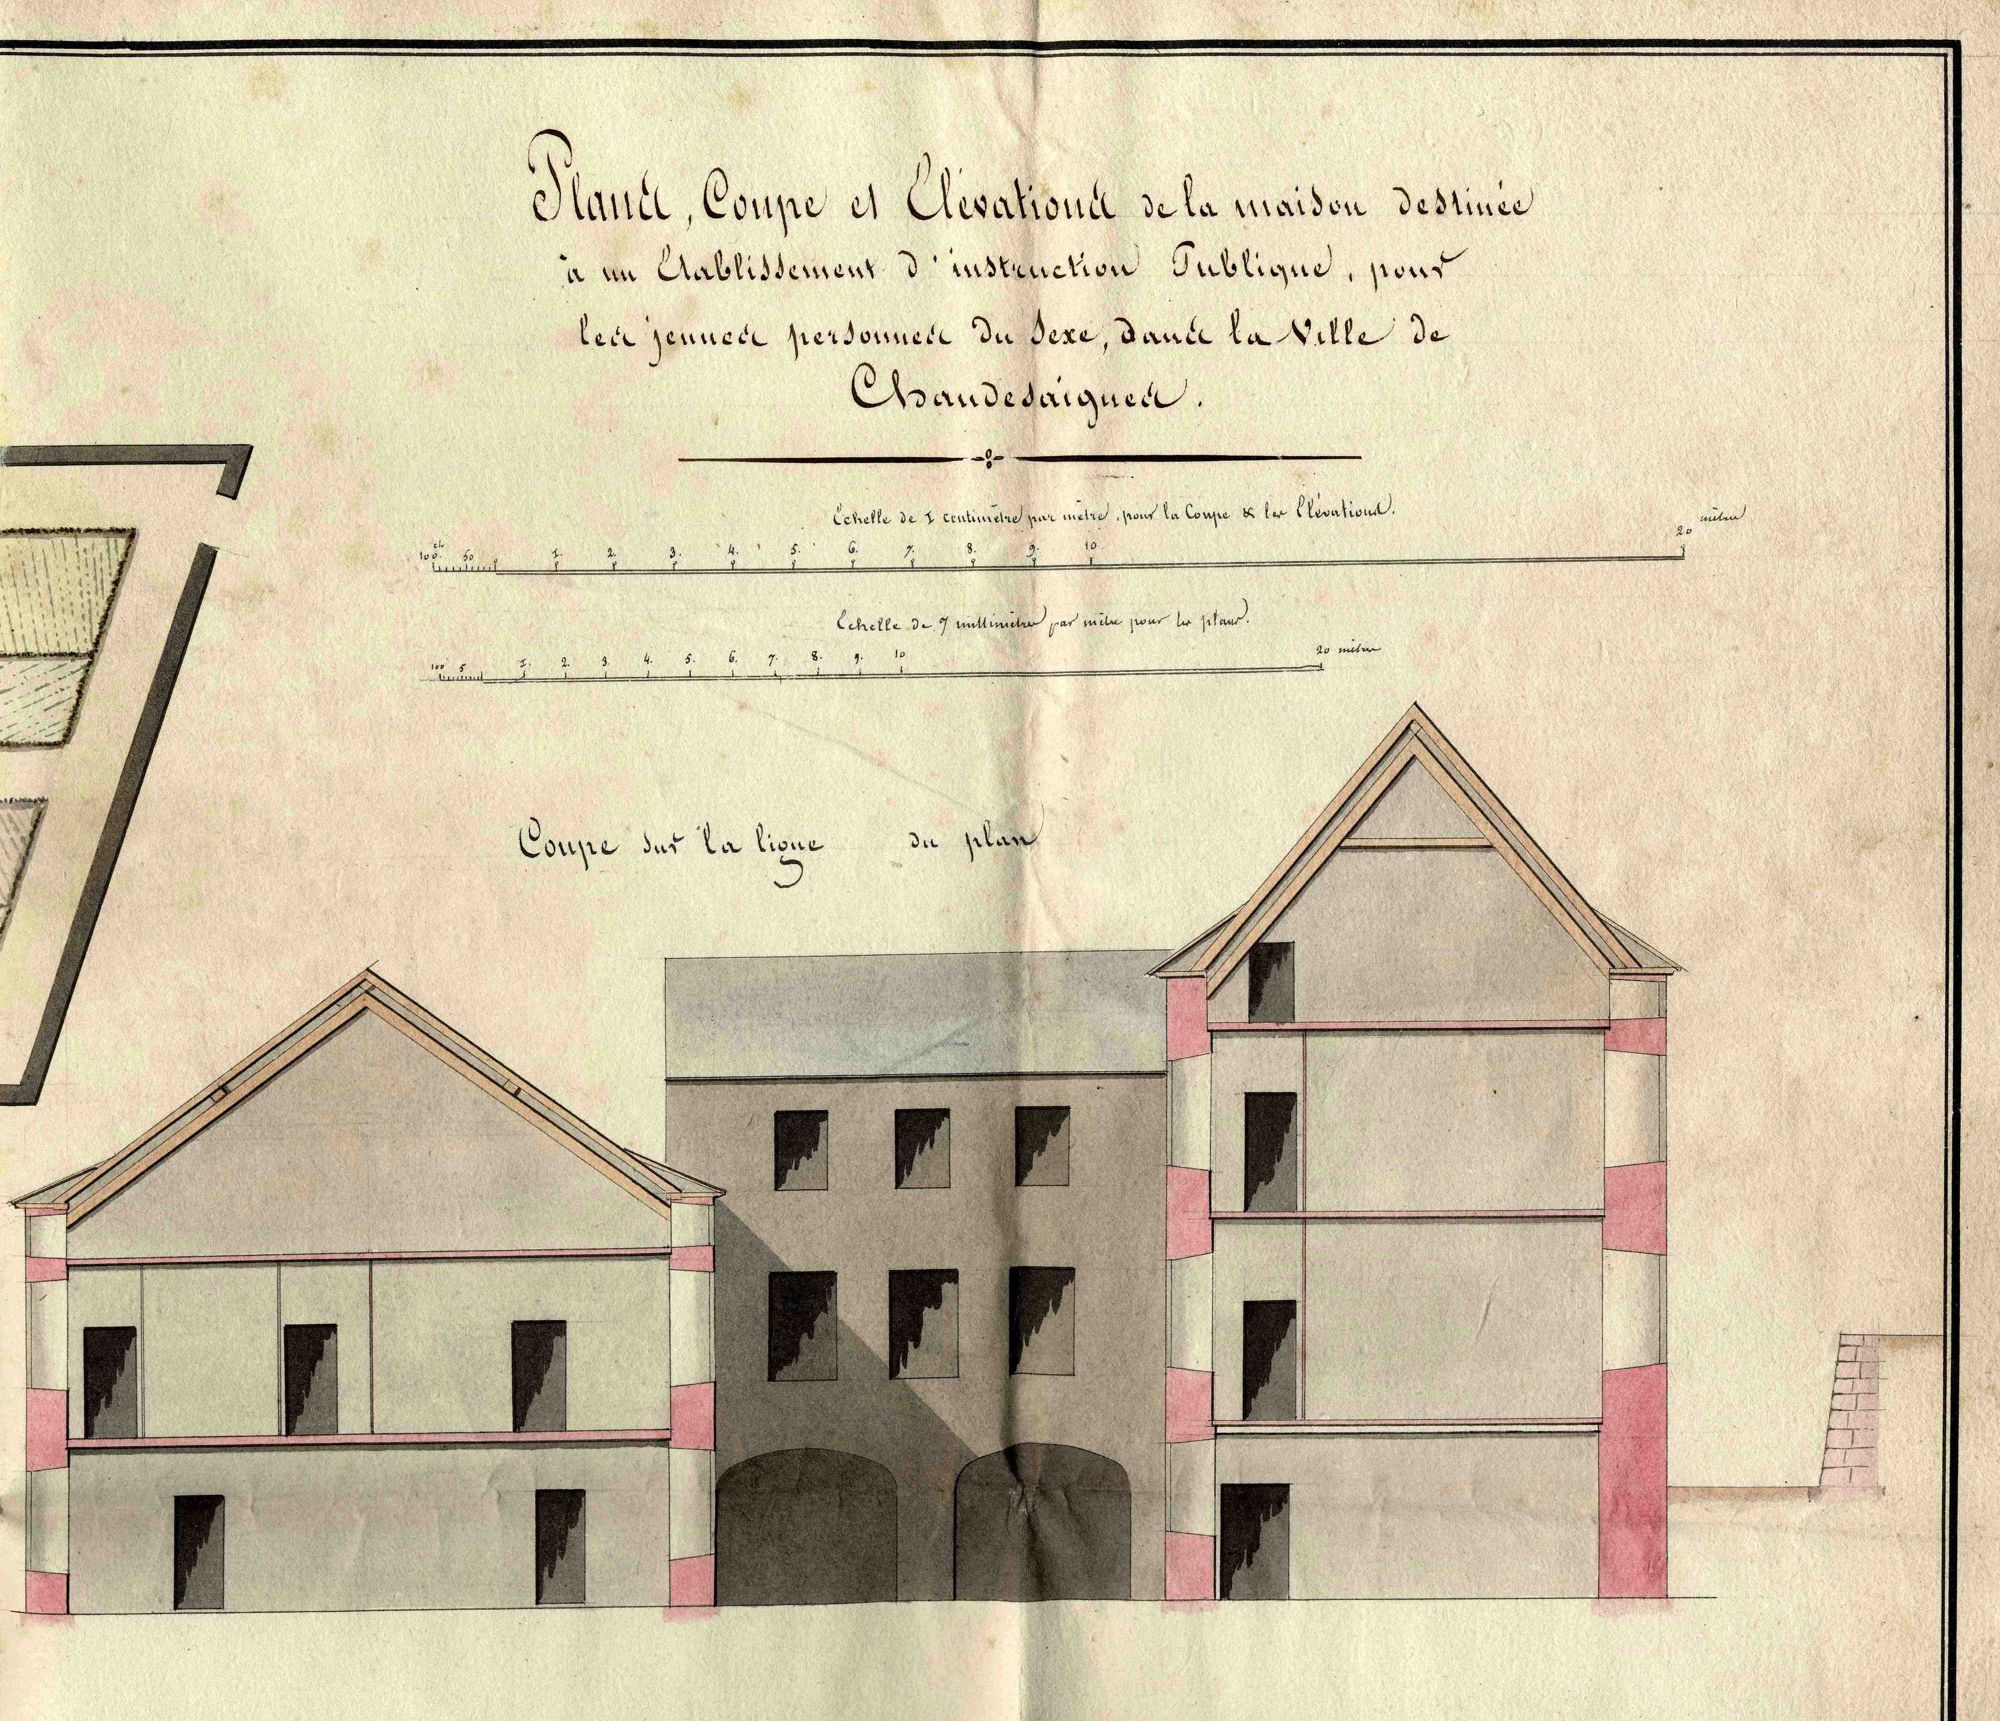 Plans, Coupe et Elévations de la maison destinée
à un Etablissement d'instruction Publique, pour
les jeunes personnes du Sexe, dans la Ville de
Chaudesaigues.
Echelle de 1 centimètre par mètre, pour la Coupe & les Elévations.
100 50 0 1. 2. 3. 4. 5. 6. 7. 8. 9. 10 20 mètres
Echelle de 7 millimètres par mètre pour les plans.
100 5 1. 2. 3. 4. 5. 6. 7. 8. 9. 10 20 mètres
Coupe sur la ligne du plan